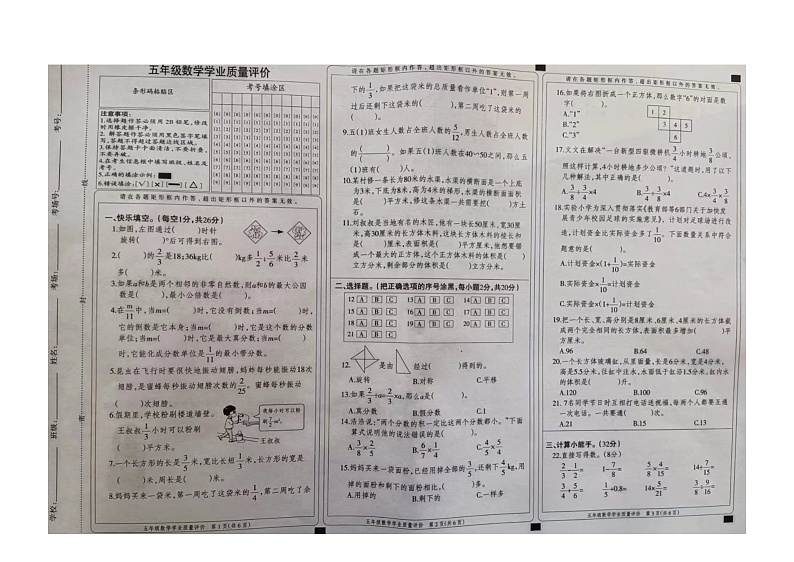 五年级数学学业质量评价
条形码粘贴区
考号填涂区
注意事项:
1.选择题作答必须用2B铅笔,修改时用橡皮擦干净。
2.解答题作答必须用黑色签字笔填写,答题不得超过答题边线区域。
3.保持答题卡卡面清洁,不要折叠、不要弄破。
4.在考生信息框中填写班级,姓名及考号。
5.正确的填涂示例:
6.错误填涂:
请在各题矩形框内作答,超出矩形框以外的答案无效。
一、快乐填空。(每空1分,共26分)
1.如图,图通过( )时针
旋转( )°后可得到右图。
2.( )的2/3是18;36kg比( )kg多1/2;5/6米比2/3米
多( )。
3.如果a和b是两个相邻的非零自然数,则a和b的最大公因
数是( ),最小公倍数是( )。
4.在m/11中,当m=( )时,它没有倒数;当m=( )时,
它的倒数是它本身;当m=( )时,它是这个数的分数
单位;当m=( )时,它是最大真分数;当m=( )
时,它能化成分数单位是1/11的最小带分数。
5.昆虫在飞行时要很快地振动翅膀,蚂蚱每秒能振动18次
翅膀,是蜜蜂每秒振动翅膀次数的2/25。蜜蜂每秒振动
( )次翅膀。
6.假期里,学校粉刷楼道墙壁。
王叔叔1/3小时可以粉刷
( )平方米。
我每小时可以粉刷7/2m²!
王叔叔
7.一个长方形的长是3/5米,宽比长短1/5米,长方形的宽是
( )米,周长是( )米。
8.妈妈买来一袋米,第一周吃了这袋米的1/4,第二周吃了余
五年级数学学业质量评价 第1页(共6页)
请在各题矩形框内作答,超出矩形框以外的答案无效。
下的1/3,如果把这袋米的总质量看作单位“1”,则第一周
过后还剩下这袋米的( ),第二周吃了这袋米的( )。
9.五(1)班女生人数占全班人数的5/12,男生人数占全班人数
的( )/( )。如果五(1)班全班人数在40~50之间,那么五
(1)班有( )人。
10.某村修一条长为80米的水渠,水渠的横断面是一个上底
为3米,下底为8米,高为4米的梯形,水渠的横断面面积
是( )平方米,修这条水渠一共需要挖( )方土
石。
11.刘叔叔是当地有名的木匠,他有一块长50厘米,宽30厘
米,高30厘米的长方体木料,这块长方体木料的棱长和
是( )厘米,表面积是( )平方厘米,他想要锯
成一个最大的正方体,这个正方体木料的体积是( )
立方分米,剩余部分的体积是( )立方分米。
二、选择题。(把正确选项的序号涂黑,每小题2分,共20分)
12 A B C 13 A B C 14 A B C
15 A B C 16 A B C 17 A B C
18 A B C 19 A B C 20 A B C
21 A B C
12. 是由 经过( )得到的。
A.旋转 B.对称 C.平移
13.如果2/3÷a=2/3×a,那么a是( )。
A.真分数 B.假分数 C.1
14.浩浩说:“两个分数的积一定比这两个分数都小。”下面
算式说明他的说法错误的是( )。
A.3/8×2/5 B.3/5×6/5 C.4/5×5/4
15.妈妈买来一袋面粉,已经用掉全部的3/5,还剩下4/5kg,用
掉的面粉和剩下的面粉相比,( )多。
A.用掉的 B.剩下的 C.一样多
五年级数学学业质量评价 第2页(共6页)
请在各题矩形框内作答,超出矩形框以外的答案无效。
16.如果将右图折成一个正方体,那么数字“6”的对面是数
字( )。
A.“2”
B.“3”
C.“3”
1 2
3 4 6
5
17.义义在解决“一台新型四驱微耕机3/4小时耕地3/8公顷。
照这样计算,4小时耕地多少公顷?”这道题时,用了以下
几种解法,其中正确的是( )。
18.实验小学为深入贯彻落实《教育部等6部门关于加快发
展青少年校园足球的实施意见》,计划对足球场进行改
造,计划资金比实际资金多1/10。下面数量关系中符合
题意的是( )。
A.计划资金×(1+1/10)=实际资金
B.计划资金×(1-1/10)=实际资金
C.实际资金×(1+1/10)=计划资金
19.把一个长、宽、高分别是8厘米、6厘米、4厘米的长方体截
成两个完全相同的长方体,表面积最多增加( )平
方厘米。
A.96 B.64 C.48
20.一个长方体玻璃缸,从里面量,长是6分米,宽是4分米,
高是5.5分米,往缸中注水,水面低于缸沿1.5分米,缸内水
的体积是( )升。
A.120 B.100 C.96
21.7名同学节日时互相打电话送祝福,每两个人都要互通
一次电话。一共要通( )次。
A.17 B.21 C.34
三、计算小能手。(32分)
22.直接写得数。(8分)
五年级数学学业质量评价 第3页(共6页)
学校:
班级:
姓名:
考场:
考场号:
考号:
密
封
线